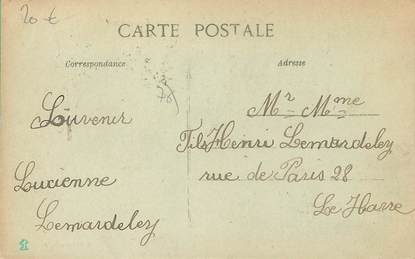 20 €
CARTE POSTALE
Correspondance
Adresse
Souvenir
Lucienne
Lemardeley
Mr & Mme
Fils Henri Lemardeley
rue de Paris 28
Le Havre